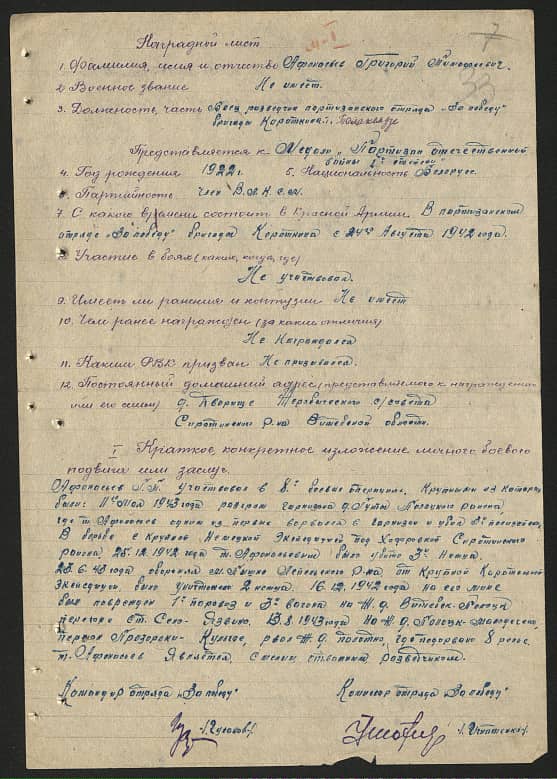 7
Наградной лист
1. Фамилия, имя и отчество Афонасьев Григорий Тимофеевич.
2. Военное звание Не имеет.
3. Должность, часть Боец разведчик партизанского отряда „За победу"
бригады Короткина.
Представляется к Медали „Партизан отечественной
войны 1ой степени"
4. Год рождения 1922 г. 5. Национальность Белорус.
6. Партийность член В.Л.К.С.М.
7. С какого времени состоит в Красной Армии В партизанском
отряде „За победу" бригады Короткина с 24го Августа 1942 года.
8. Участие в боях (каких, когда, где)
Не участвовал.
9. Имеет ли ранения и контузии Не имеет
10. Чем ранее награжден (за какие отличия)
Не Награждался
11. Каким РВК призван Не призывался.
12. Постоянный домашний адрес (представляемого к награждению
или его семьи) д. Дворище с/совета
Сиротинского р-на Витебской области.
I Краткое, конкретное изложение личного боевого
подвига или заслуг.
Афонасьев Г.Т. Участвовал в 8и боевых операциях. Крупными из которых
были: 11го Мая 1943 года разгром гарнизона д. Гуты Полоцкого района,
где т. Афонасьев одним из первых ворвался в гарнизон и убил
В борьбе с Крупной Немецкой Экспедицией под Сиротинского
района 25.12.1942 года т. Афонасьевым было убито 3и Немца.
23.6.43 года обороняя м. Пышно Лепельского р-на от Крупной Карательной
Экспедиции, было уничтожено 2 немца. 16.12.1942 года на его мине
был поврежден 1н паровоз и 3и вагона на Ж.Д. Витебск-Полоцк
перегоне ст. Село-Язвино. 13.8.1943 года На Ж.Д. Полоцк-Молодечно,
перегон Прозороки-Кульгае, рвал Ж.Д. полотно, где подорвано 8 рельс.
т. Афонасьев Является Смелым разведчиком.
Командир отряда „За победу" Комиссар отряда „За победу"
/Гудков/ /Игнатенко/